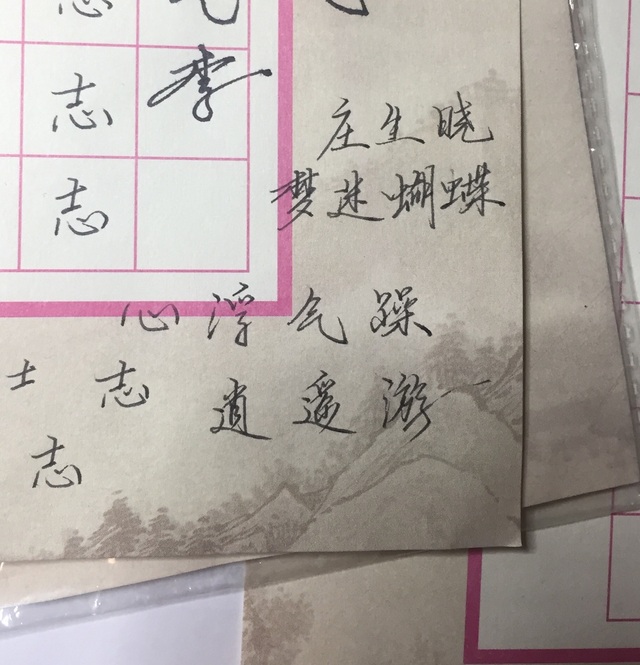 志
志 李
志
庄生晓
梦迷蝴蝶
心浮气躁
士 志 逍遥游
志